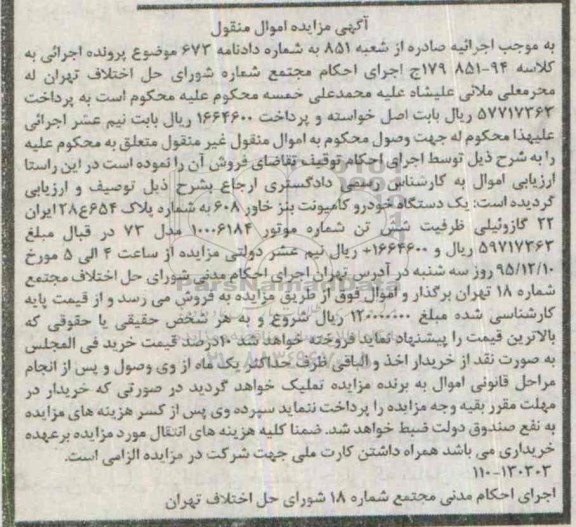 آگهی مزایده اموال منقول
به موجب اجرائیه صادره از شعبه ۸۵۱ به شماره دادنامه ۶۷۳ موضوع پرونده اجرائی به
کلاسه ۹۴-۸۵۱ ۱۷۹ج اجرای احکام مجتمع شماره شورای حل اختلاف تهران له
محرمعلی ملائی علیشاد علیه محمدعلی خمسه محکوم علیه محکوم است به پرداخت
۵۷۷۱۷۳۶۳ ریال بابت اصل خواسته و پرداخت ۱۶۶۴۶۰۰ ریال بابت نیم عشر اجرائی
علیهذا محکوم له جهت وصول محکوم به اموال منقول غیر منقول متعلق به محکوم علیه
را به شرح ذیل توسط اجرای احکام توقیف تقاضای فروش آن را نموده است در این راستا
ارزیابی اموال به کارشناس رسمی دادگستری ارجاع بشرح ذیل توصیف و ارزیابی
گردیده است: یک دستگاه خودرو کامیونت بنز خاور ۶۰۸ به شماره پلاک ۶۵۴ع۲۸ ایران
۲۲ گازوئیلی ظرفیت شش تن شماره موتور ۱۰۰۰۶۱۸۴ مدل ۷۳ در قبال مبلغ
۵۹۷۱۷۳۶۳ ریال و ۱۶۶۴۶۰۰+ ریال نیم عشر دولتی مزایده از ساعت ۴ الی ۵ مورخ
۹۵/۱۲/۱۰ روز سه شنبه در آدرس تهران اجرای احکام مدنی شورای حل اختلاف مجتمع
شماره ۱۸ تهران برگذار و اموال فوق از طریق مزایده به فروش می رسد و از قیمت پایه
کارشناسی شده مبلغ ۱۲۰۰۰۰۰۰۰ ریال شروع و به هر شخص حقیقی یا حقوقی که
بالاترین قیمت را پیشنهاد نماید فروخته خواهد شد ۱۰درصد قیمت خرید فی المجلس
به صورت نقد از خریدار اخذ و الباقی ظرف حداکثر یک ماه از وی وصول و پس از انجام
مراحل قانونی اموال به برنده مزایده تملیک خواهد گردید در صورتی که خریدار در
مهلت مقرر بقیه وجه مزایده را پرداخت ننماید سپرده وی پس از کسر هزینه های مزایده
به نفع صندوق دولت ضبط خواهد شد. ضمنا کلیه هزینه های انتقال مورد مزایده برعهده
خریداری می باشد همراه داشتن کارت ملی جهت شرکت در مزایده الزامی است.
۱۱۰-۱۳۰۳۰۳
اجرای احکام مدنی مجتمع شماره ۱۸ شورای حل اختلاف تهران
ParsNamadData